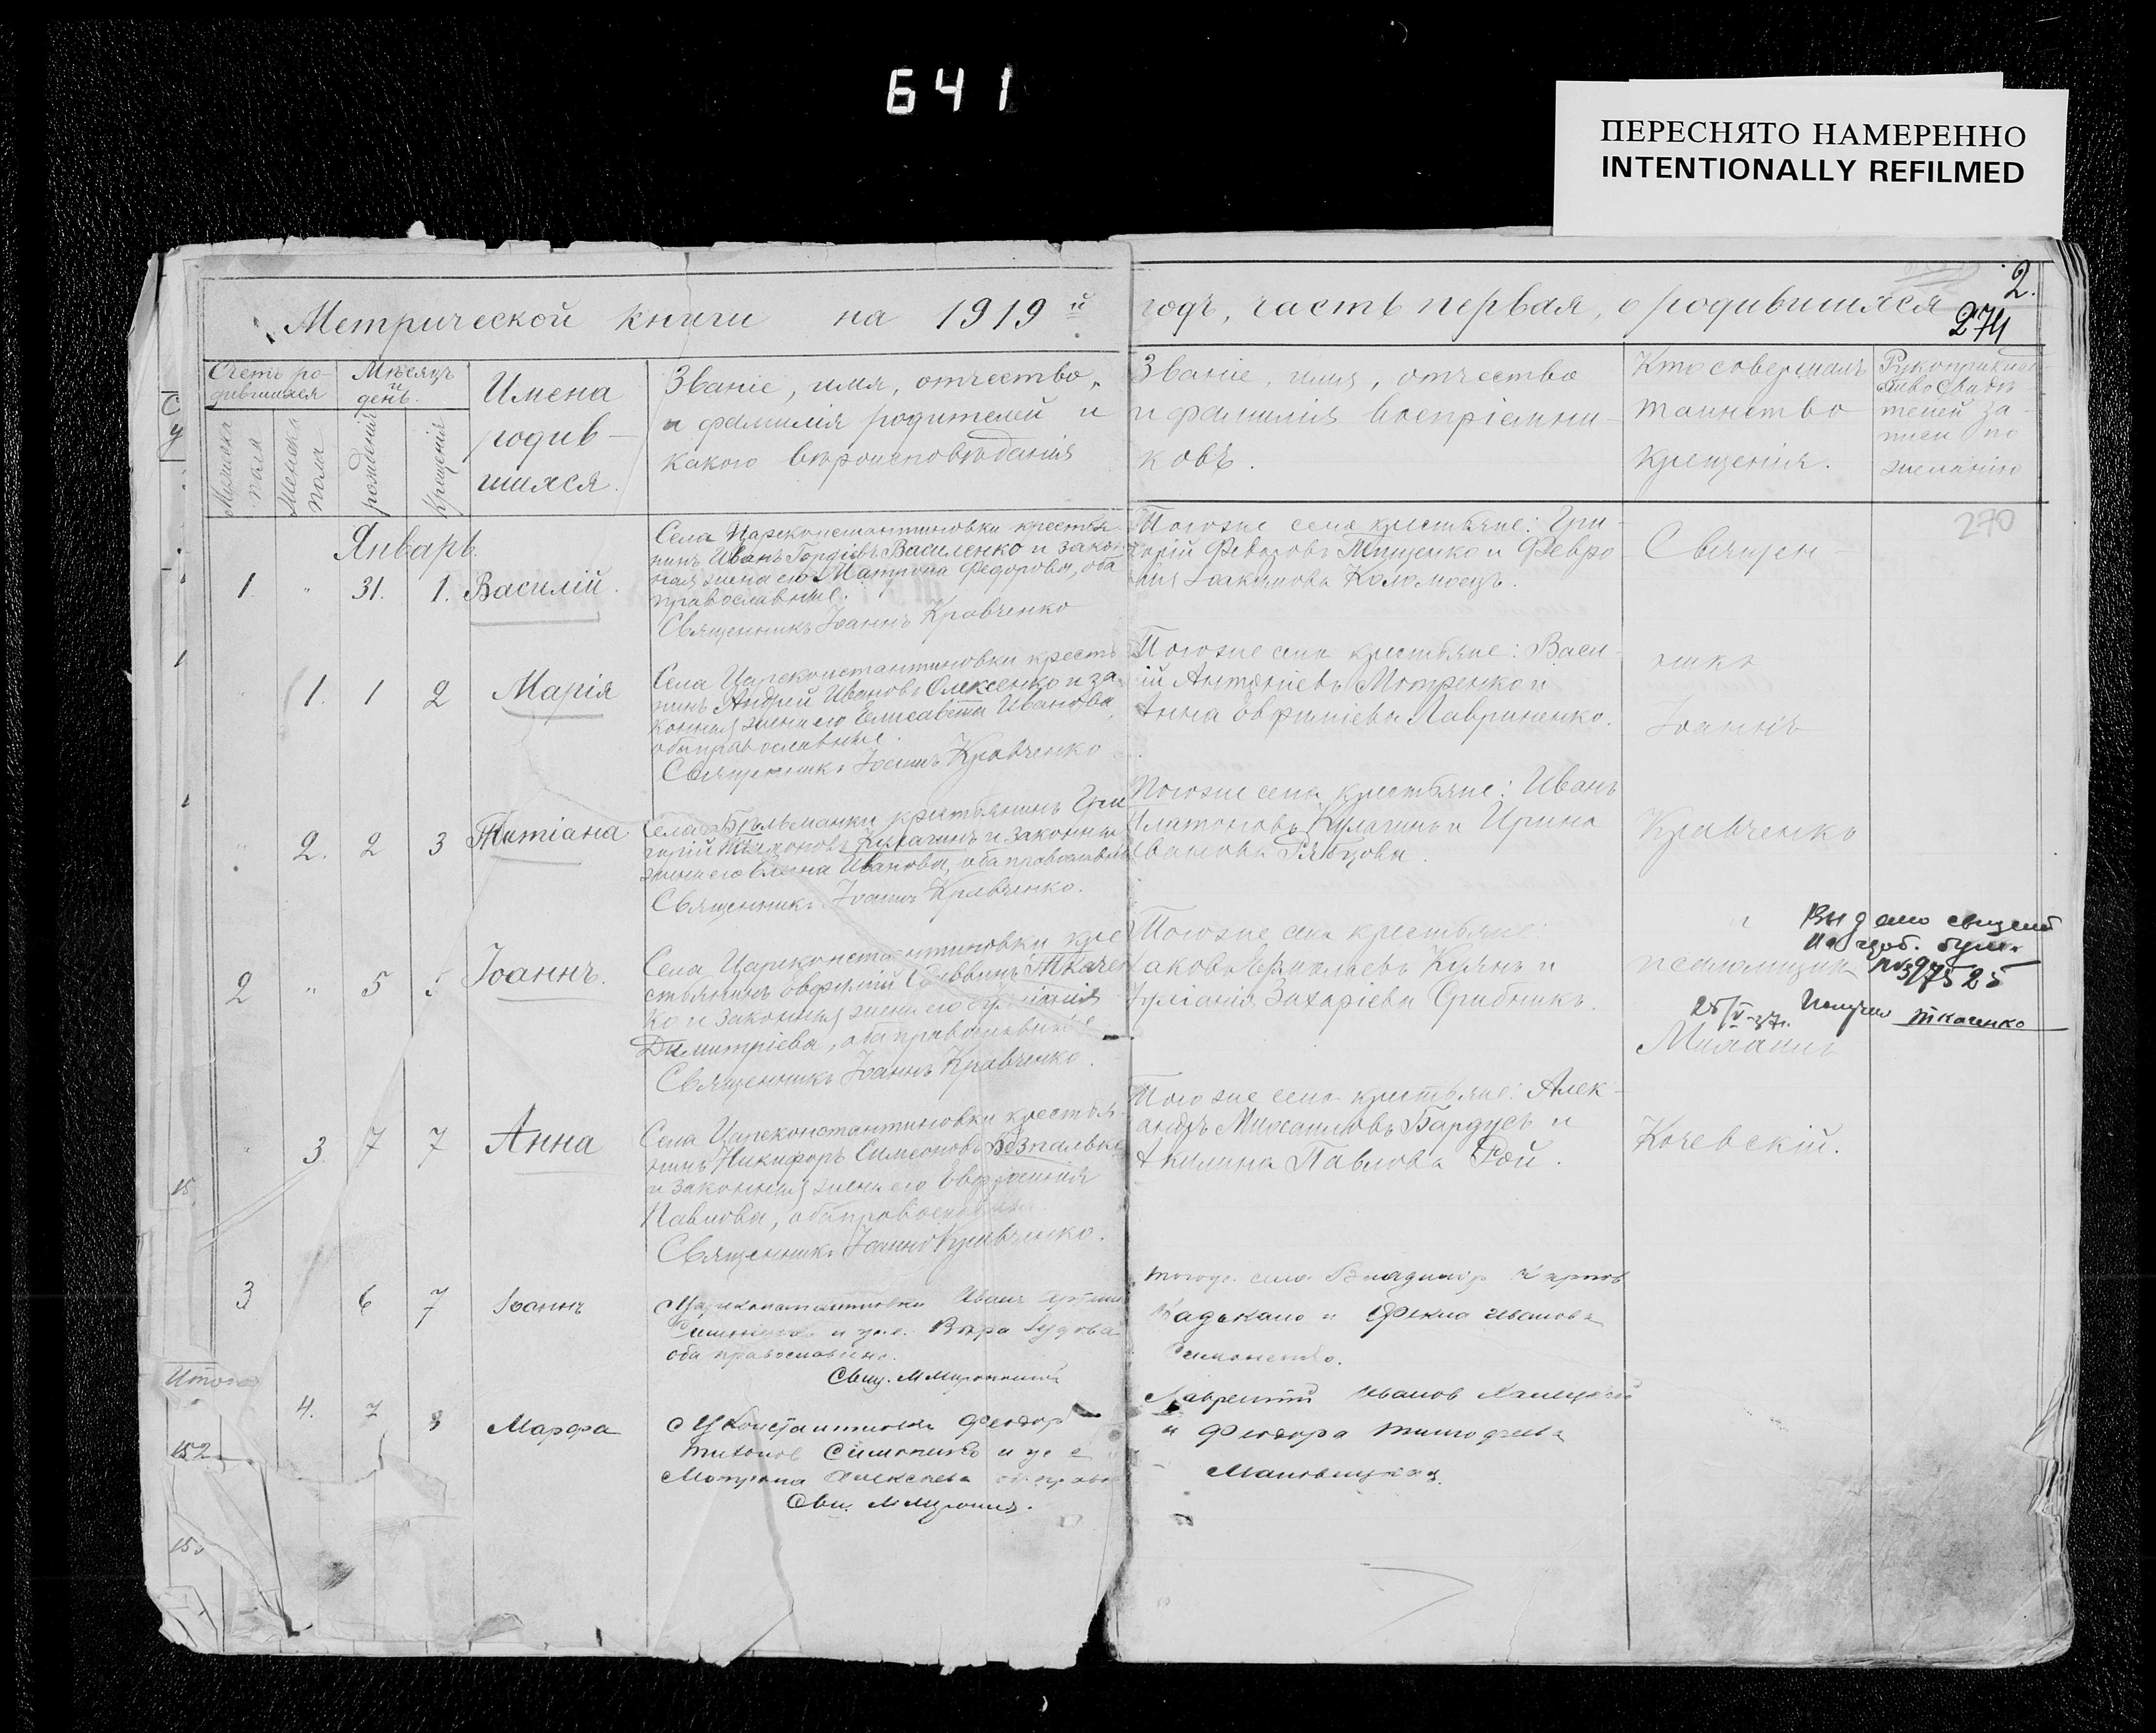 641
ПЕРЕСНЯТО НАМЕРЕННО
INTENTIONALLY REFILMED
2.
274
Метрической книги на 1919й
годъ, часть первая, о родившихся
Счетъ ро-
дившихся
Мѣсяцъ
и
день.
Мужеска
пола
Женска
пола
рожденія
Крещенія
Имена
родив-
шихся.
Званіе, имя, отчество,
и фамилія родителей и
какого вѣроисповѣданія
Званіе, имя, отчество
и фамилія воспріемни-
ковъ.
Кто совершалъ
таинство
крещенія.
свидѣ
телей за-
писи по
желанію
270
Январь.
1. " 31. 1. Василій.
Села Цареконстантиновки крестья
нинъ Иванъ Гордіевъ Василенко и закон
ная жена его Матрона Федорова, оба
православные.
Священникъ Іоаннъ Кравченко
Тогоже села крестьяне: Гри-
горій Федоровъ Тищенко и Февро
нія Коломоецъ.
Священ-
" 1. 1 2 Марія
Села Цареконстантиновки кресть
нинъ Андрей Ивановъ Олексенко и за
конная жена его Елисавета Иванова,
оба православные.
Священникъ Іоаннъ Кравченко
Тогоже села крестьяне: Васи-
ій Антоніевъ Мотренко и
Анна Евфиміева Лавриненко.
никъ
Іоаннъ
" 2. 2 3 Татіана
села крестьянинъ Гри
горій Кулагинъ и законная
жена его Елена Иванова, оба православные
Священникъ Іоаннъ Кравченко.
Тогоже села крестьяне: Иванъ
Платоновъ Кулагинъ и Ирина
Иванова
Кравченко
2 " 5 5 Іоаннъ.
Села Цареконстантиновки кре
стьянинъ Евфимій Ткачен
ко и законная жена его
Димитріева, оба православные
Священникъ Іоаннъ Кравченко.
Тогоже села крестьяне:
Іаковъ Куянъ и
Захаріева
и
псаломщикъ
Выдано свидет
25/V-37г. Получил Ткаченко
Михаилъ
" 3 7 7 Анна
Села Цареконстантиновки крестья-
нинъ Никифоръ Симеоновъ Безпалько
и законная жена его Евфросинія
Павлова, оба православные
Священникъ Іоаннъ Кравченко.
Тогоже села крестьяне: Алек-
андръ Михаиловъ Бардусъ и
Акилина Павлова Рой.
Кочевскій.
3 6 7 Іоаннъ
Цареконстантиновки Иванъ
и ж.е. Вѣра
оба православные.
Свящ.
тогоже села Владимір Карпов
и Фекла Иванова
4. 7 8 Марфа
Феодор
Тихонов и ж е
Матрона Алексеева
Свящ.
Лаврентій Иванов
и Феодора Тимофеева
Итого
152